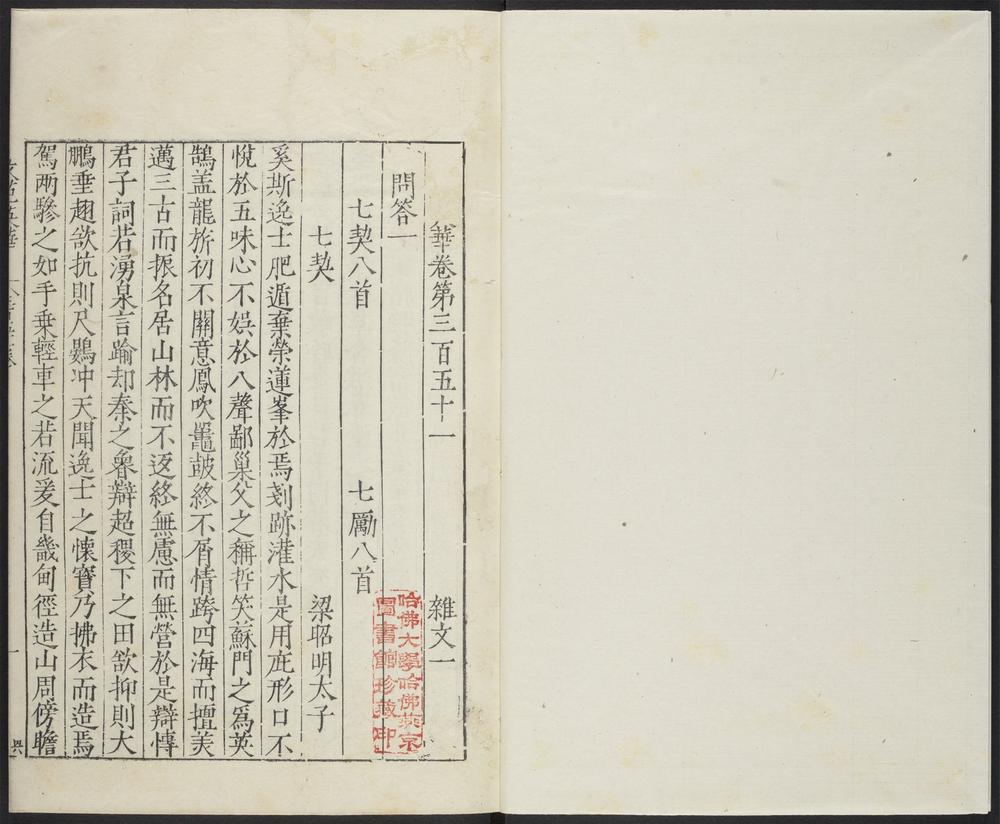 華卷第三百五十一 雜文一
問答一
七契八首 七勵八首
七契 梁昭明太子
奚斯逸士肥遁棄榮蓮峯於焉剗跡灌水是用庇形口不
悅於五味心不娯於八聲鄙巢父之稱哲笑蘇門之爲英
鵠盖龍旂初不關意鳳吹鼉皷終不屑情跨四海而擅美
邁三古而振名居山林而不返終無慮而無營於是辯博
君子詞若湧泉言踰却秦之魯辯超稷下之田欲抑則大
鵬垂翅欲抗則尺鷃冲天聞逸士之懐寳乃拂衣而造焉
駕兩驂之如手乗輕車之若流爰自畿甸徑造山周傍瞻
哈佛大學哈佛燕京
圖書館珍藏印
一